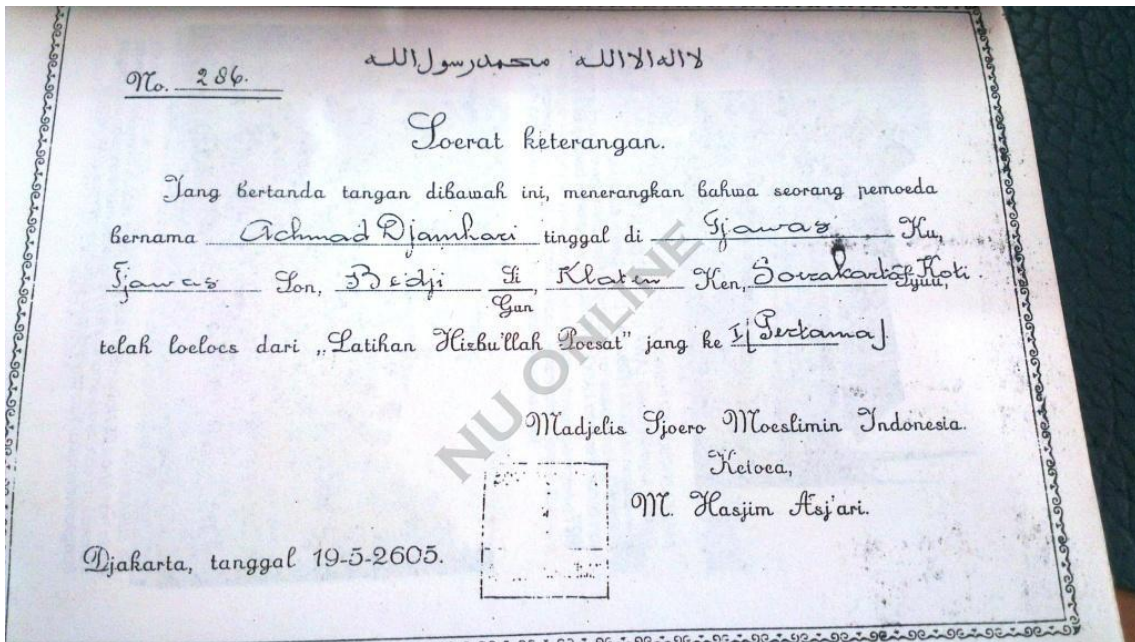 لا اله الا الله محمد رسول الله
No. 286.
Soerat keterangan.
Jang bertanda tangan dibawah ini, menerangkan bahwa seorang pemoeda
bernama Achmad Djamhari tinggal di Tjawas Ku,
Tjawas Son, Bedji Si/Gun, Klaten Ken, Soerakarta Koti.
telah loeloes dari „Latihan Hizbu'llah Poesat" jang ke I [Pertama]
Madjelis Sjoero Moeslimin Indonesia.
Ketoea,
M. Hasjim Asj'ari.
Djakarta, tanggal 19-5-2605.
NU ONLINE